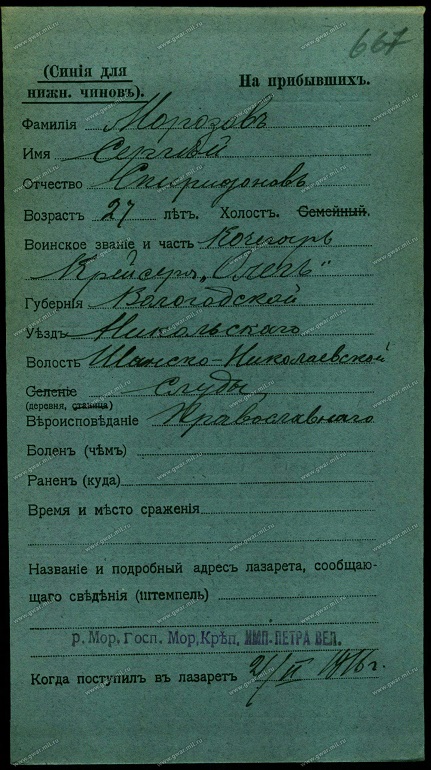 667
(Синія для
нижн. чиновъ).
На прибывшихъ.
Фамилія Морозовъ
Имя Сергѣй
Отчество Спиридоновъ
Возрастъ 27 лѣтъ. Холостъ. Семейный.
Воинское званіе и часть Кочегаръ
Крейсеръ „Олегъ"
Губернія Вологодской
Уѣздъ Никольскаго
Волость Шанско-Николаевской
Селеніе Слуды,
(деревня, станица)
Вѣроисповѣданіе Православнаго
Боленъ (чѣмъ)
Раненъ (куда)
Время и мѣсто сраженія
Названіе и подробный адресъ лазарета, сообщаю-
щаго свѣдѣнія (штемпель)
р. Мор. Госп. Мор. Крѣп. ИМП. ПЕТРА ВЕЛ.
Когда поступилъ въ лазаретъ 2/II 1916 г.
www.gwar.mil.ru